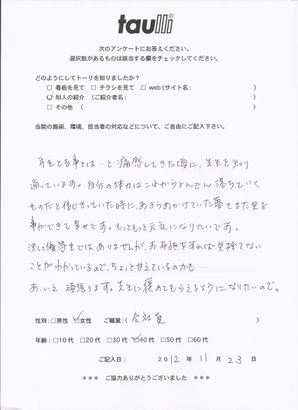 taulli
次のアンケートにお答えください。
選択肢があるものは該当する欄をチェックしてください。
どのようにしてトーリを知りましたか?
□ 看板を見て □ チラシを見て □ web(サイト名: )
☑ 知人の紹介 (ご紹介者名: )
□ その他 ( )
当院の施術、環境、担当者の対応などについて、ご自由にご記入下さい。
年をとる事とは…と痛感してきた頃に、先生を知り
通っています。自分の体力はこれからどんどん落ちていく
ものだと信じきっていた時に、あきらめかけていた夢をまた見る
事ができて幸せです。もっともっと元気になりたいです。
決して優等生ではありませんが、お布施をすれば見捨てない
ことがわかっているので、ちょっと甘えているのかも…
あ、いえ、頑張ります。先生に褒めてもらえるようになりたいので。
性別:□男性 ☑女性 ご職業:( 会社員 )
年齢:□10代 □20代 □30代 ☑40代 □50代 □60代
ご記入日: 2012年 11月 23日
*** ご協力ありがとうございました ***